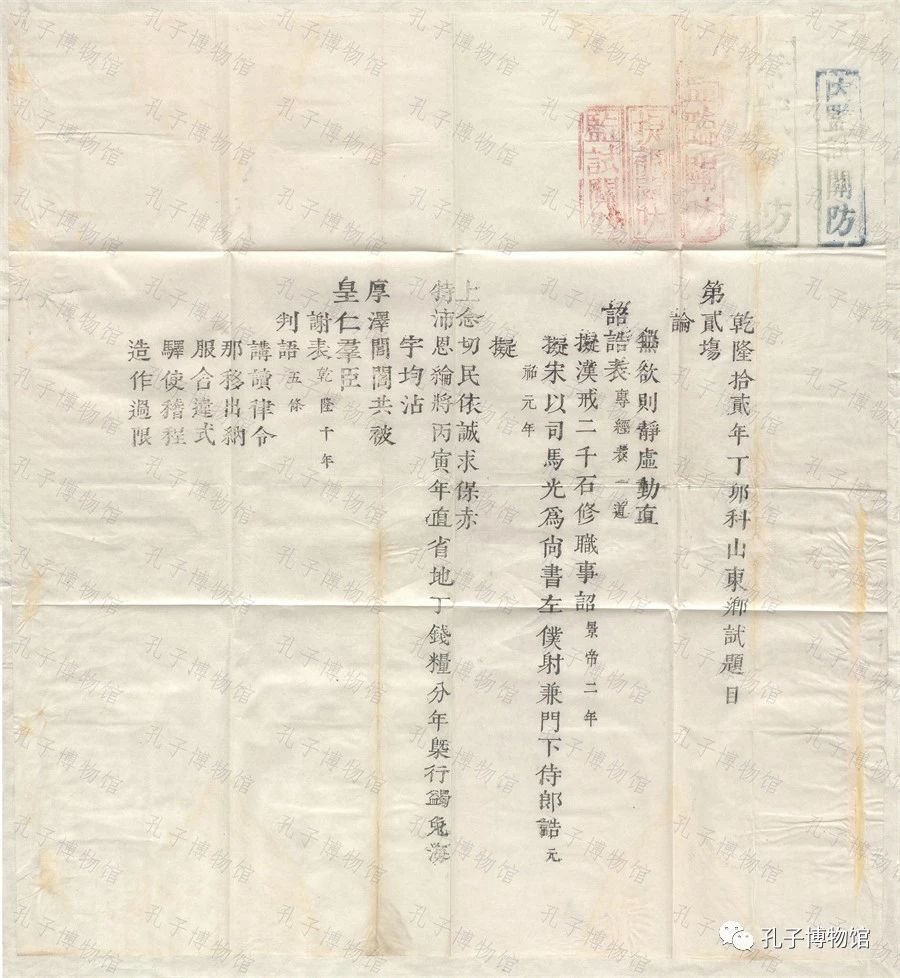 乾隆拾貳年丁卯科山東鄉試題目
第貳場
論
無欲則靜虛動直
詔誥表專經表一道
擬漢戒二千石修職事詔景帝二年
擬宋以司馬光為尚書左僕射兼門下侍郎誥元
祐元年
擬
上念切民依誠求保赤
特沛恩綸將丙寅年直省地丁錢糧分年槩行蠲免海
宇均沾
厚澤閭閻共被
皇仁羣臣
謝表乾隆十年
判語五條
講讀律令
那移出納
服舍違式
驛使稽程
造作過限
內監試關防
監試關防
孔子博物馆